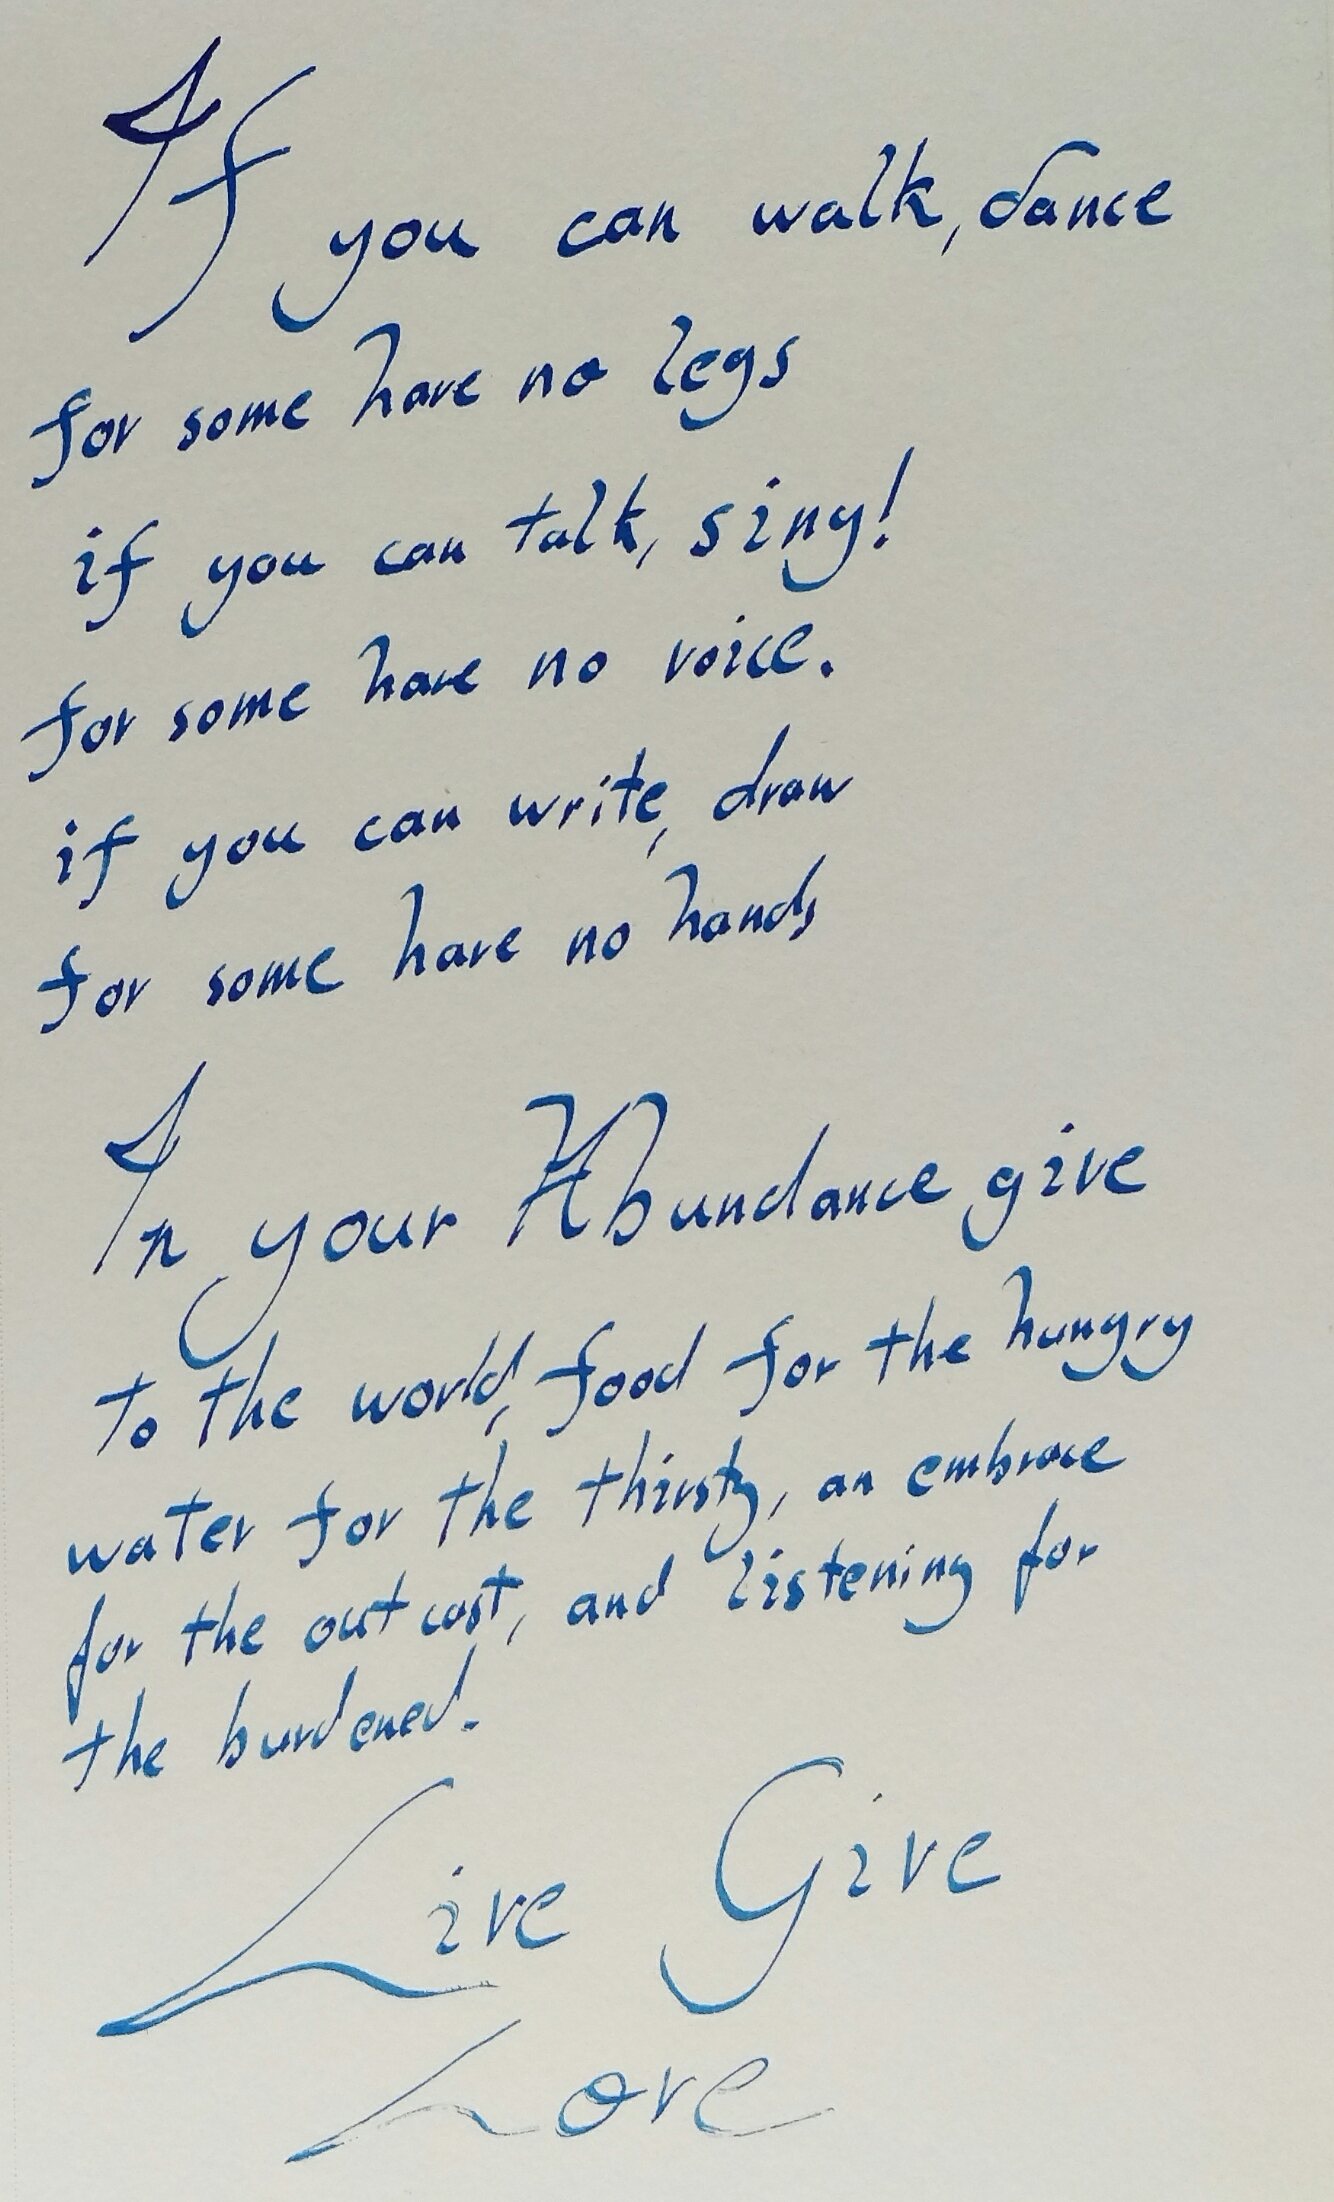 If you can walk, dance
for some have no legs
if you can talk, sing!
for some have no voice.
if you can write, draw
for some have no hands
In your Abundance give
to the world, food for the hungry
water for the thirsty, an embrace
for the outcast, and listening for
the burdened.
Live Give
Love